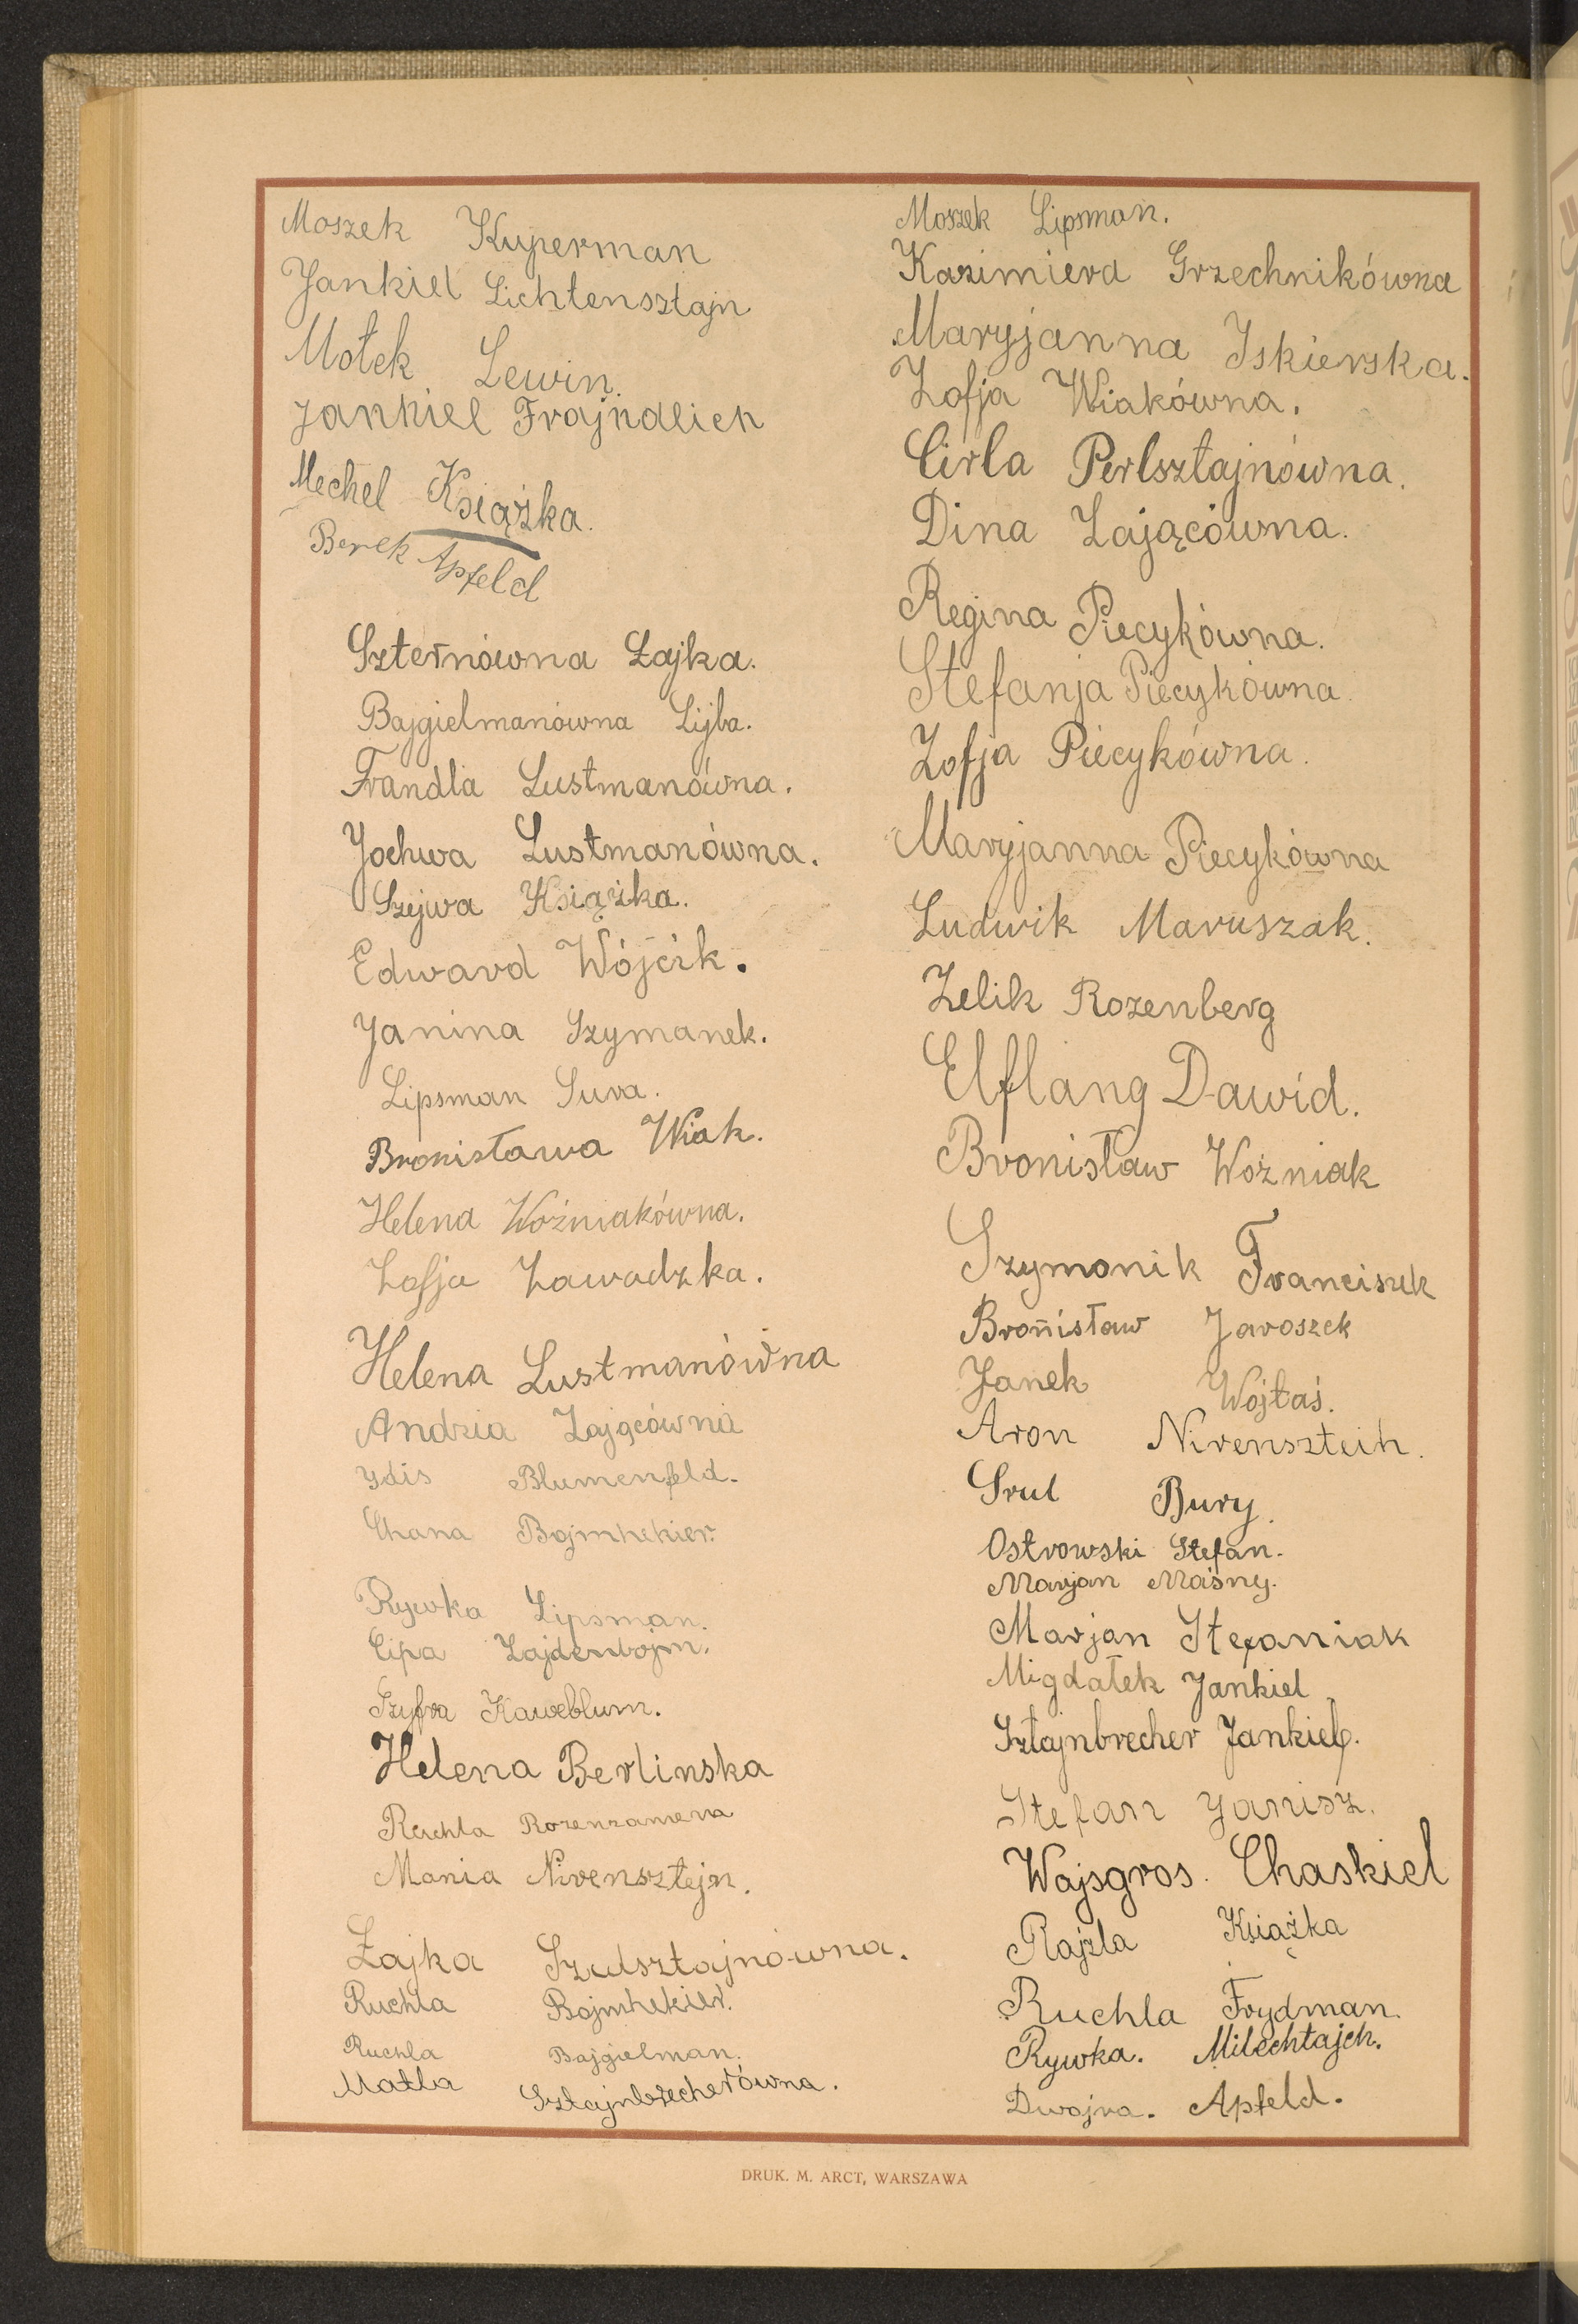 Moszek Kuperman
Jankiel Lichtensztajn
Motek Lewin.
Jankiel Frajndlich
Mechel Książka.
Berek Apfeld
Szternówna Łajka.
Bajgielmanówna Lijba.
Frandla Lustmanówna.
Jochwa Lustmanówna.
Szejwa Książka.
Edward Wójcik.
Janina Szymanek.
Lipsman Sura.
Bronisława Wiak.
Helena Woźniakówna.
Zofja Zawadzka.
Helena Lustmanówna
Andzia Zającówna
Ydis Blumenfeld.
Chana Bojmhekier.
Rywka Lipsman.
Cipa Zajdenbojm.
Szyfra Kaweblum.
Helena Berlinska
Ruchla Rozenzamena
Mania Nirensztejn.
Łajka Szulsztajnówna.
Ruchla Bojmhekier.
Ruchla Bajgielman.
Matla Sztajnbrecherówna.
Moszek Lipsman.
Kazimiera Grzechnikówna
Maryjanna Iskierska.
Zofja Wiakówna.
Cirla Perlsztajnówna.
Dina Zającówna.
Regina Piecykówna.
Stefanja Piecykówna.
Zofja Piecykówna.
Maryjanna Piecykówna
Ludwik Maruszak.
Zelik Rozenberg
Elflang Dawid.
Bronisław Woźniak
Szymonik Franciszek
Bronisław Jaroszek
Janek Wojtaś.
Aron Nirensztein.
Srul Bury.
Ostrowski Stefan.
Marjan Maśny.
Marjan Stefaniak
Migdałek Jankiel
Sztajnbrecher Jankiel.
Stefan Janisz.
Wajsgros. Chaskiel
Rajzla Książka
Ruchla Frydman.
Rywka. Milechtajch.
Dwojra. Apfeld.
DRUK. M. ARCT, WARSZAWA